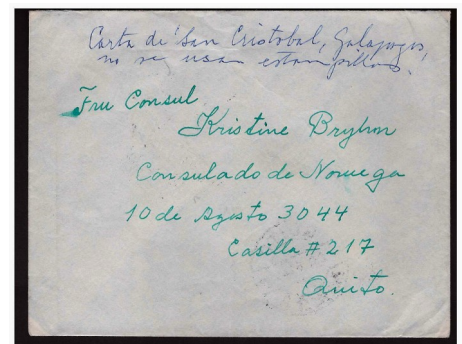 Carta de San Cristobal, Galapagos,
no se usan estampillas.
Fru Consul
Kristine Bryhn
Consulado de Noruega
10 de Agosto 3044
Casilla # 217
Quito.